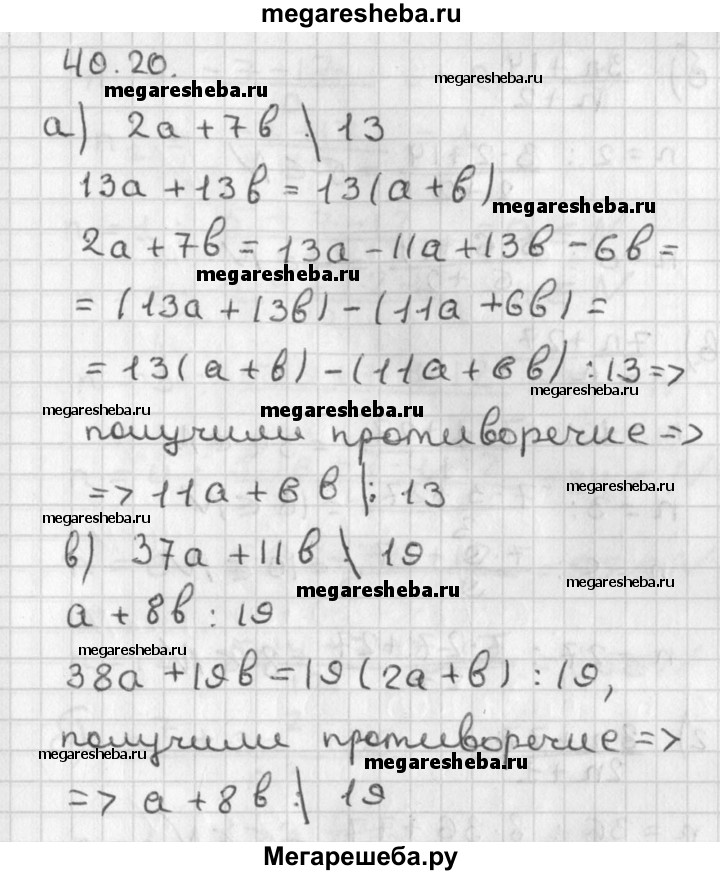 megaresheba.ru
40.20.
megaresheba.ru
megaresheba.ru
а) 2a + 7b ⋮̸ 13
13a + 13b = 13(a + b)
megaresheba.ru
2a + 7b = 13a - 11a + 13b - 6b =
megaresheba.ru
= (13a + 13b) - (11a + 6b) =
= 13(a + b) - (11a + 6b) ⋮ 13 =>
megaresheba.ru
megaresheba.ru
megaresheba.ru
получили противоречие =>
=> 11a + 6b ⋮̸ 13
megaresheba.ru
megaresheba.ru
в) 37a + 11b ⋮̸ 19
megaresheba.ru
megaresheba.ru
a + 8b ⋮ 19
megaresheba.ru
38a + 19b = 19(2a + b) ⋮ 19,
получили противоречие =>
megaresheba.ru
megaresheba.ru
=> a + 8b ⋮̸ 19
Мегарешеба.ру